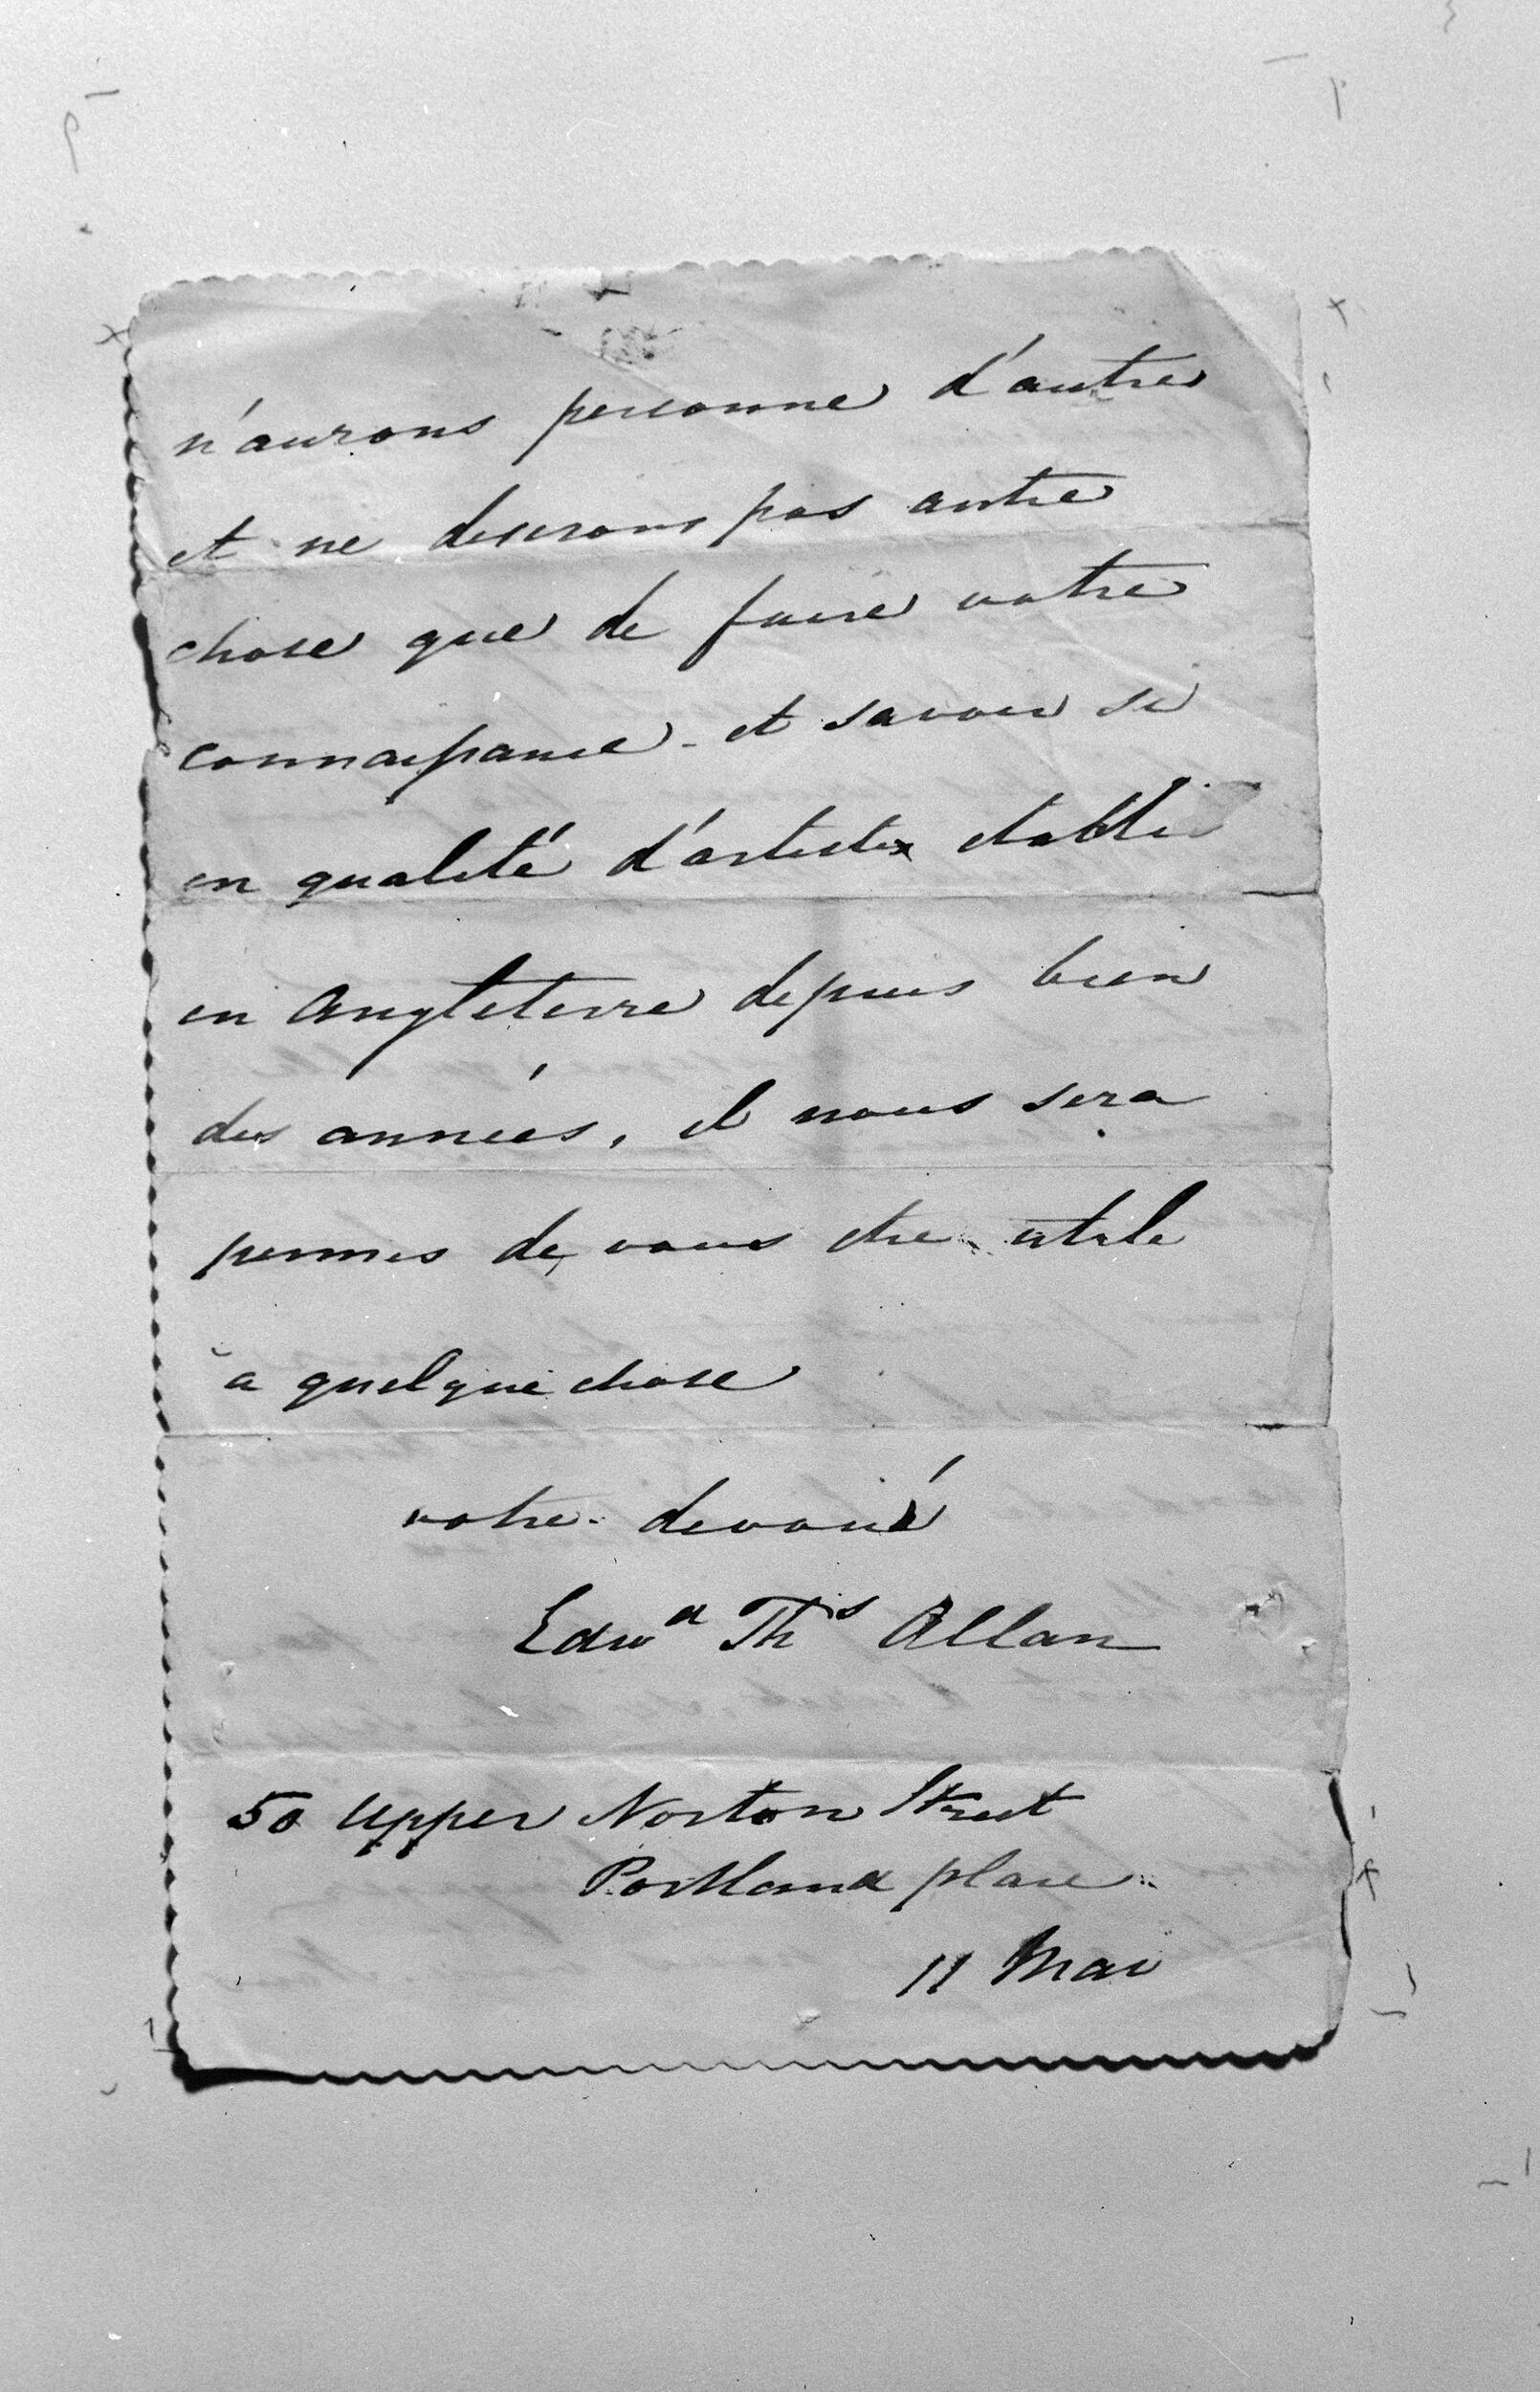 n'aurons personne d'autre
et ne desirons pas autre
chose que de faire votre
connaissance - et savoir si
en qualité d'artiste etabli
en Angleterre depuis bien
des années, il nous sera
permis de vous etre utile
à quelque chose
votre devoué
Edwd Ths Allan
50 Upper Norton Street
Portland place
11 Mai